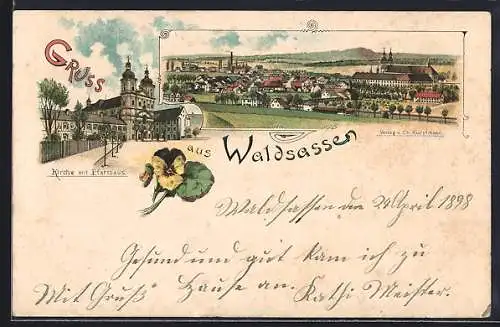 Gruss
aus Waldsassen
Kirche mit Pfarrhaus.
Verlag v. Ch.
Waldsassen den 24 April 1898
Gesund und gut kam ich zu
Hause an.
Mit Gruß
Kathi Meister.